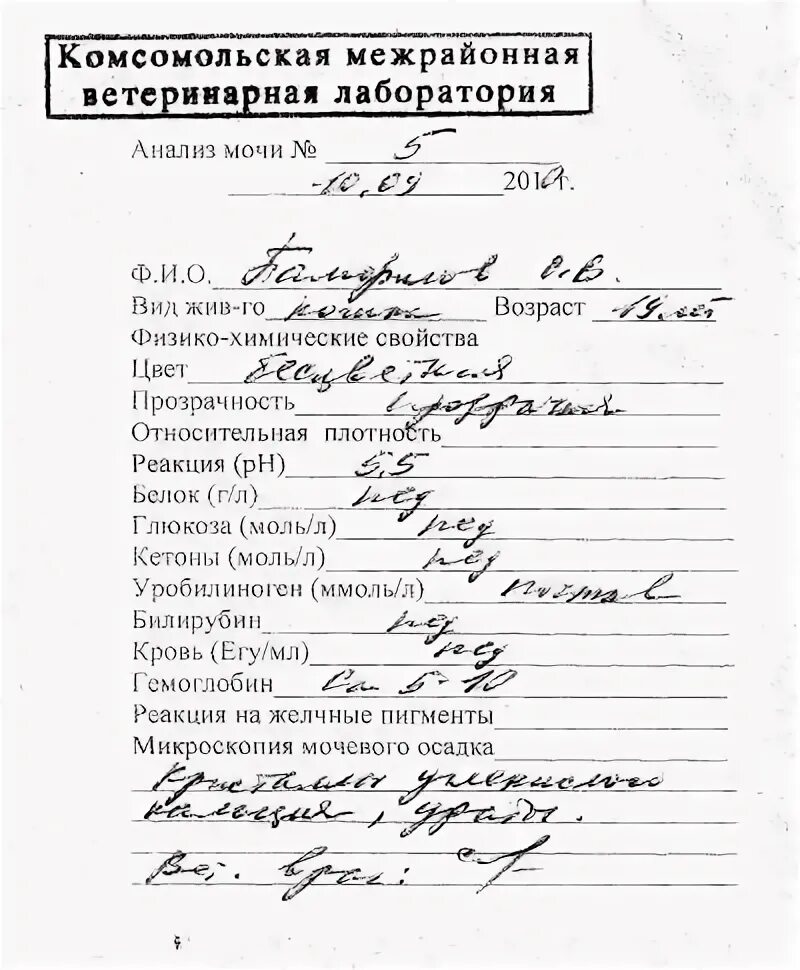 Комсомольская межрайонная
ветеринарная лаборатория
Анализ мочи № 5
10.09 2010г.
Ф.И.О. Памфилов С.В.
Вид жив-го кошка Возраст 19 лет
Физико-химические свойства
Цвет бесцветная
Прозрачность прозрачная
Относительная плотность
Реакция (pH) 5,5
Белок (г/л) neg
Глюкоза (моль/л) neg
Кетоны (моль/л) neg
Уробилиноген (ммоль/л)
Билирубин neg
Кровь (Егу/мл) neg
Гемоглобин Ca 5-10
Реакция на желчные пигменты
Микроскопия мочевого осадка
Кристаллы углекислого
кальция, ураты.
Вет. врач: